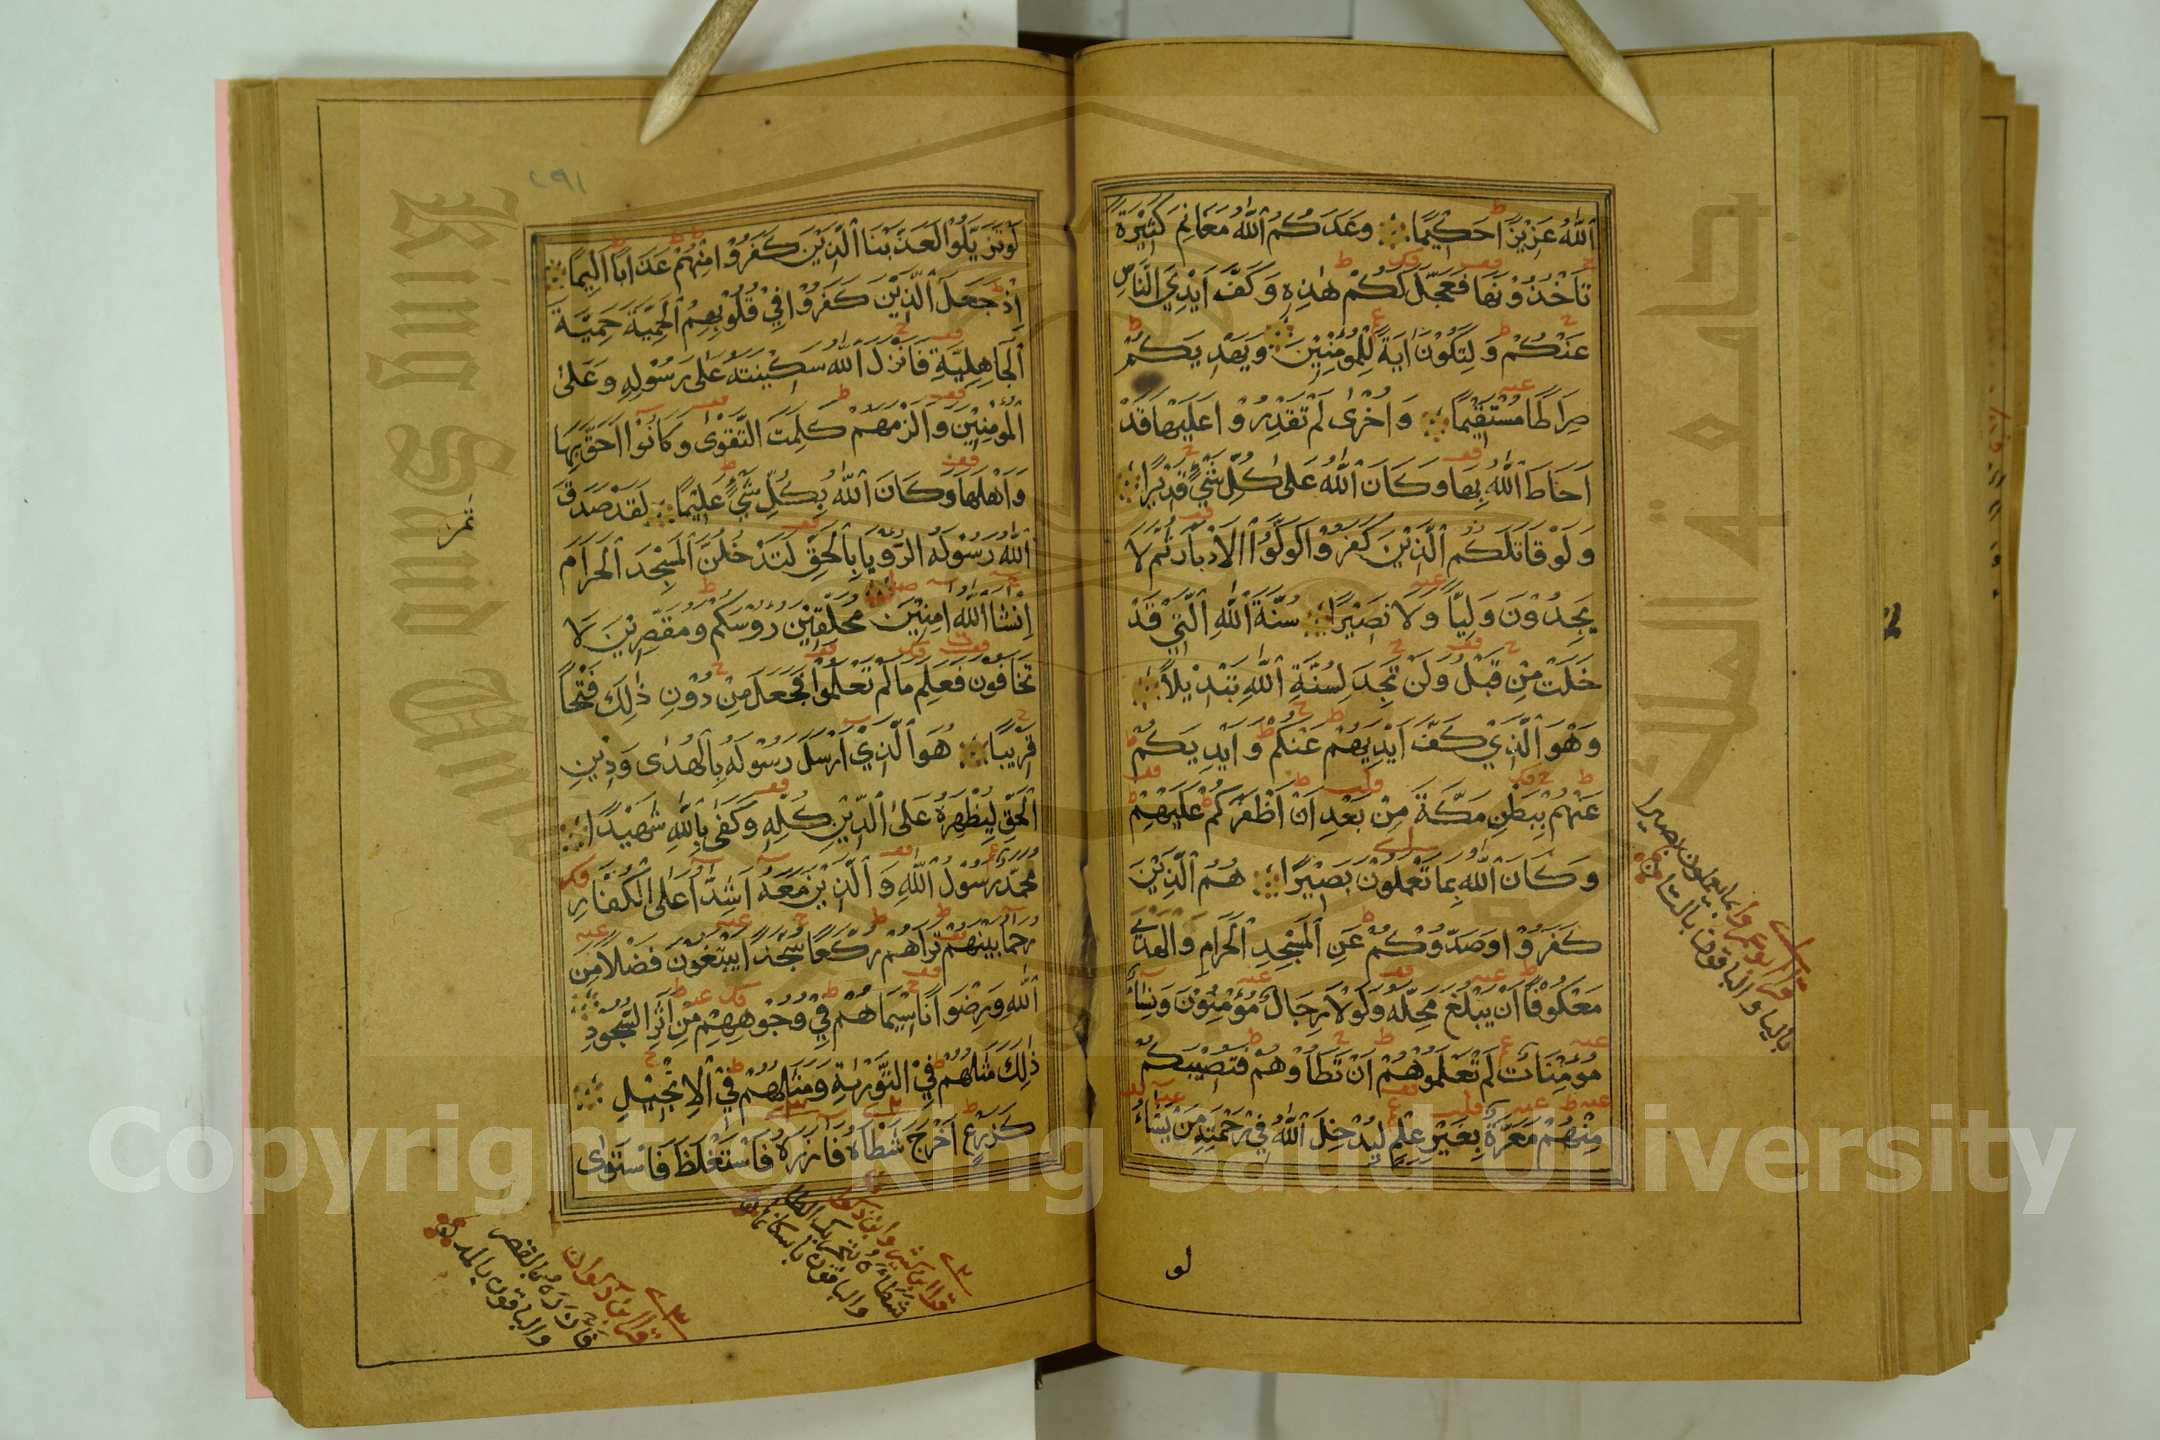 ٱللَّهُ عَزِيْزًا حَكِيْمًا وَعَدَكُمُ ٱللَّهُ مَغَانِمَ كَثِيْرَةً
تَأْخُذُوْنَهَا فَعَجَّلَ لَكُمْ هٰذِهِ وَكَفَّ اَيْدِيَ النَّاسِ
عَنْكُمْ وَلِتَكُوْنَ اٰيَةً لِّلْمُؤْمِنِيْنَ وَيَهْدِيَكُمْ
صِرَاطًا مُسْتَقِيْمًا وَاُخْرٰى لَمْ تَقْدِرُوْا عَلَيْهَا قَدْ
اَحَاطَ ٱللَّهُ بِهَا وَكَانَ ٱللَّهُ عَلٰى كُلِّ شَيْءٍ قَدِيْرًا
وَلَوْ قَاتَلَكُم ٱلَّذِيْنَ كَفَرُوْا لَوَلَّوُا الْاَدْبَارَ ثُمَّ لَا
يَجِدُوْنَ وَلِيًّا وَلَا نَصِيْرًا سُنَّةَ ٱللَّهِ ٱلَّتِيْ قَدْ
خَلَتْ مِنْ قَبْلُ وَلَنْ تَجِدَ لِسُنَّةِ ٱللَّهِ تَبْدِيْلًا
وَهُوَ ٱلَّذِيْ كَفَّ اَيْدِيَهُمْ عَنْكُمْ وَاَيْدِيَكُمْ
عَنْهُمْ بِبَطْنِ مَكَّةَ مِنْ بَعْدِ اَنْ اَظْفَرَكُمْ عَلَيْهِمْ
وَكَانَ ٱللَّهُ بِمَا تَعْمَلُوْنَ بَصِيْرًا هُمُ ٱلَّذِيْنَ
كَفَرُوْا وَصَدُّوْكُمْ عَنِ ٱلْمَسْجِدِ ٱلْحَرَامِ وَالْهَدْيَ
مَعْكُوْفًا اَنْ يَبْلُغَ مَحِلَّهُ وَلَوْلَا رِجَالٌ مُؤْمِنُوْنَ وَنِسَاءٌ
مُؤْمِنَاتٌ لَمْ تَعْلَمُوْهُمْ اَنْ تَطَاُوْهُمْ فَتُصِيْبَكُمْ
مِنْهُمْ مَعَرَّةٌ بِغَيْرِ عِلْمٍ لِيُدْخِلَ ٱللَّهُ فِيْ رَحْمَتِهِ مَنْ يَشَاءُ
لو
قرا ابو عمرو بما يعملون بصيرا
باليا والباقون بالتا
٢٩١
لَوْ تَزَيَّلُوْا لَعَذَّبْنَا ٱلَّذِيْنَ كَفَرُوْا مِنْهُمْ عَذَابًا اَلِيْمًا
اِذْ جَعَلَ ٱلَّذِيْنَ كَفَرُوْا فِيْ قُلُوْبِهِمُ ٱلْحَمِيَّةَ حَمِيَّةَ
ٱلْجَاهِلِيَّةِ فَاَنْزَلَ ٱللَّهُ سَكِيْنَتَهُ عَلٰى رَسُوْلِهِ وَعَلٰى
الْمُؤْمِنِيْنَ وَاَلْزَمَهُمْ كَلِمَةَ التَّقْوٰى وَكَانُوْا اَحَقَّ بِهَا
وَاَهْلَهَا وَكَانَ ٱللَّهُ بِكُلِّ شَيْءٍ عَلِيْمًا لَقَدْ صَدَقَ
ٱللَّهُ رَسُوْلَهُ الرُّوْيَا بِالْحَقِّ لَتَدْخُلُنَّ ٱلْمَسْجِدَ ٱلْحَرَامَ
اِنْشَا ٱللَّهُ اٰمِنِيْنَ مُحَلِّقِيْنَ رُؤُسَكُمْ وَمُقَصِّرِيْنَ لَا
تَخَافُوْنَ فَعَلِمَ مَا لَمْ تَعْلَمُوْا فَجَعَلَ مِنْ دُوْنِ ذٰلِكَ فَتْحًا
قَرِيْبًا هُوَ ٱلَّذِيْ اَرْسَلَ رَسُوْلَهُ بِالْهُدٰى وَدِيْنِ
ٱلْحَقِّ لِيُظْهِرَهُ عَلَى ٱلدِّيْنِ كُلِّهِ وَكَفٰى بِاللَّهِ شَهِيْدًا
مُحَمَّدٌ رَسُوْلُ ٱللَّهِ وَٱلَّذِيْنَ مَعَهُ اَشِدَّاءُ عَلَى الْكُفَّارِ
رُحَمَاءُ بَيْنَهُمْ تَرَاهُمْ رُكَّعًا سُجَّدًا يَبْتَغُوْنَ فَضْلًا مِنَ
ٱللَّهِ وَرِضْوَانًا سِيْمَاهُمْ فِيْ وُجُوْهِهِمْ مِنْ اَثَرِ السُّجُوْدِ
ذٰلِكَ مَثَلُهُمْ فِي التَّوْرٰىةِ وَمَثَلُهُمْ فِي ٱلْاِنْجِيْلِ
كَزَرْعٍ اَخْرَجَ شَطْاَهُ فَاٰزَرَهُ فَاسْتَغْلَظَ فَاسْتَوٰى
قرا ابن كثير وابن ذكوان
شَطَاَهُ بتحريك الطا
والباقون باسكانها
قرا ابن ذكوان
فَاَزَرَهُ بالقصر
والباقون بالمد
King Saud University
جامعة الملك سعود
Copyright © King Saud University